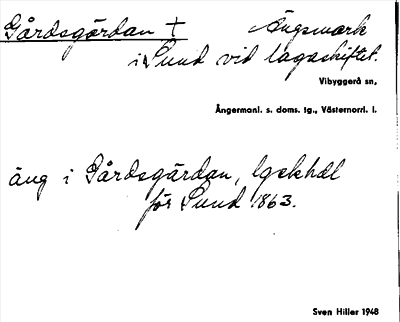 Gårdsgärdan † Ängsmark
i Sund vid lagaskiftet.
Vibyggerå sn,
Ångermanl. s. doms. tg., Västernorrl. l.
äng i Gårdsgärdan, lgskhdl
för Sund 1863.
Sven Hiller 1948